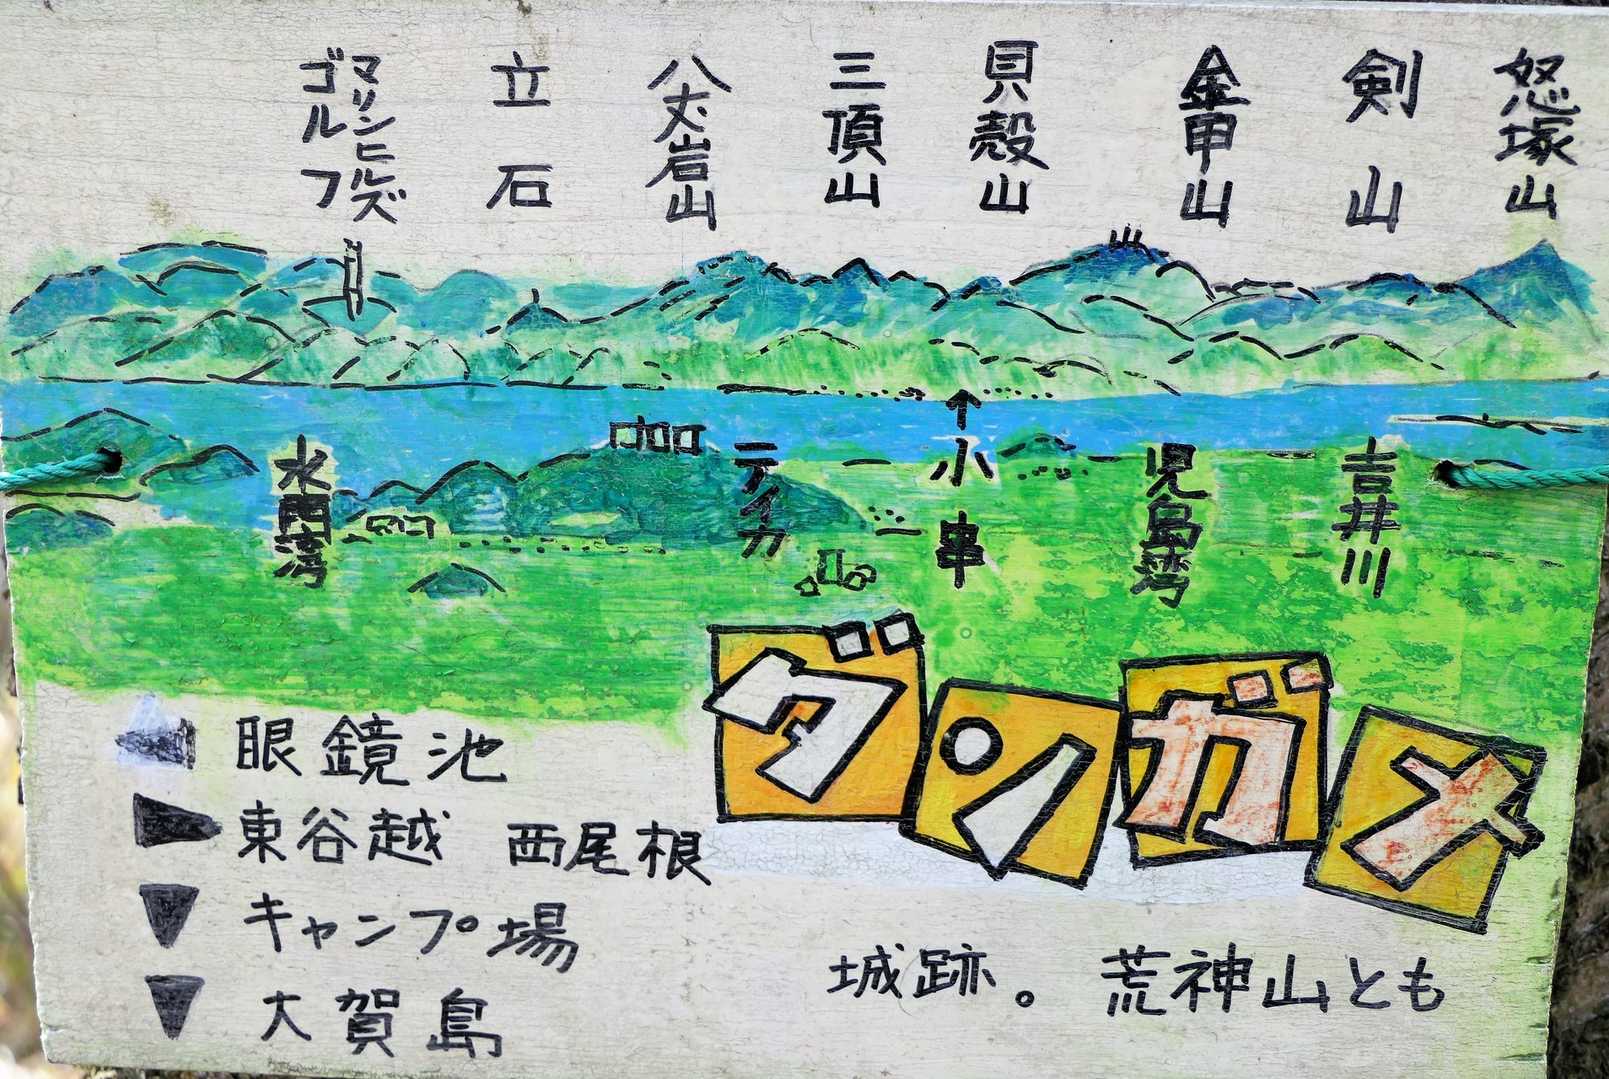 マリンヒルズ
ゴルフ
立石
八丈岩山
三頂山
貝殻山
金甲山
剣山
怒塚山
水門湾
テイカ
↑小串
児島湾
吉井川
ダンガメ
眼鏡池
東谷越 西尾根
キャンプ場
大賀島
城跡。荒神山とも